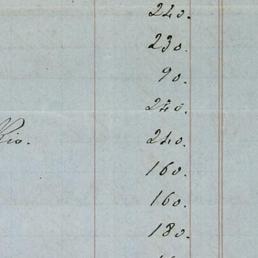 240.
230.
90.
220.
Rio. 240.
160.
160.
180.